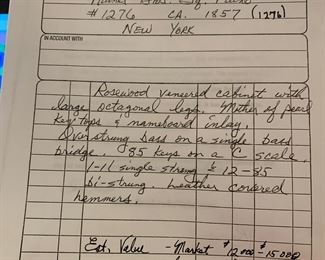 #1276 CA. 1857 (1276)
NEW YORK
IN ACCOUNT WITH
Rosewood veneered cabinet with
large octagonal legs. Mother of pearl
Key tops & nameboard inlay.
Overstrung bass on a single bass
bridge. 85 keys on a C scale.
1-11 single strung & 12-85
bi-strung. Leather covered
hammers.
Est. Value - Market $12,000 - $15,000